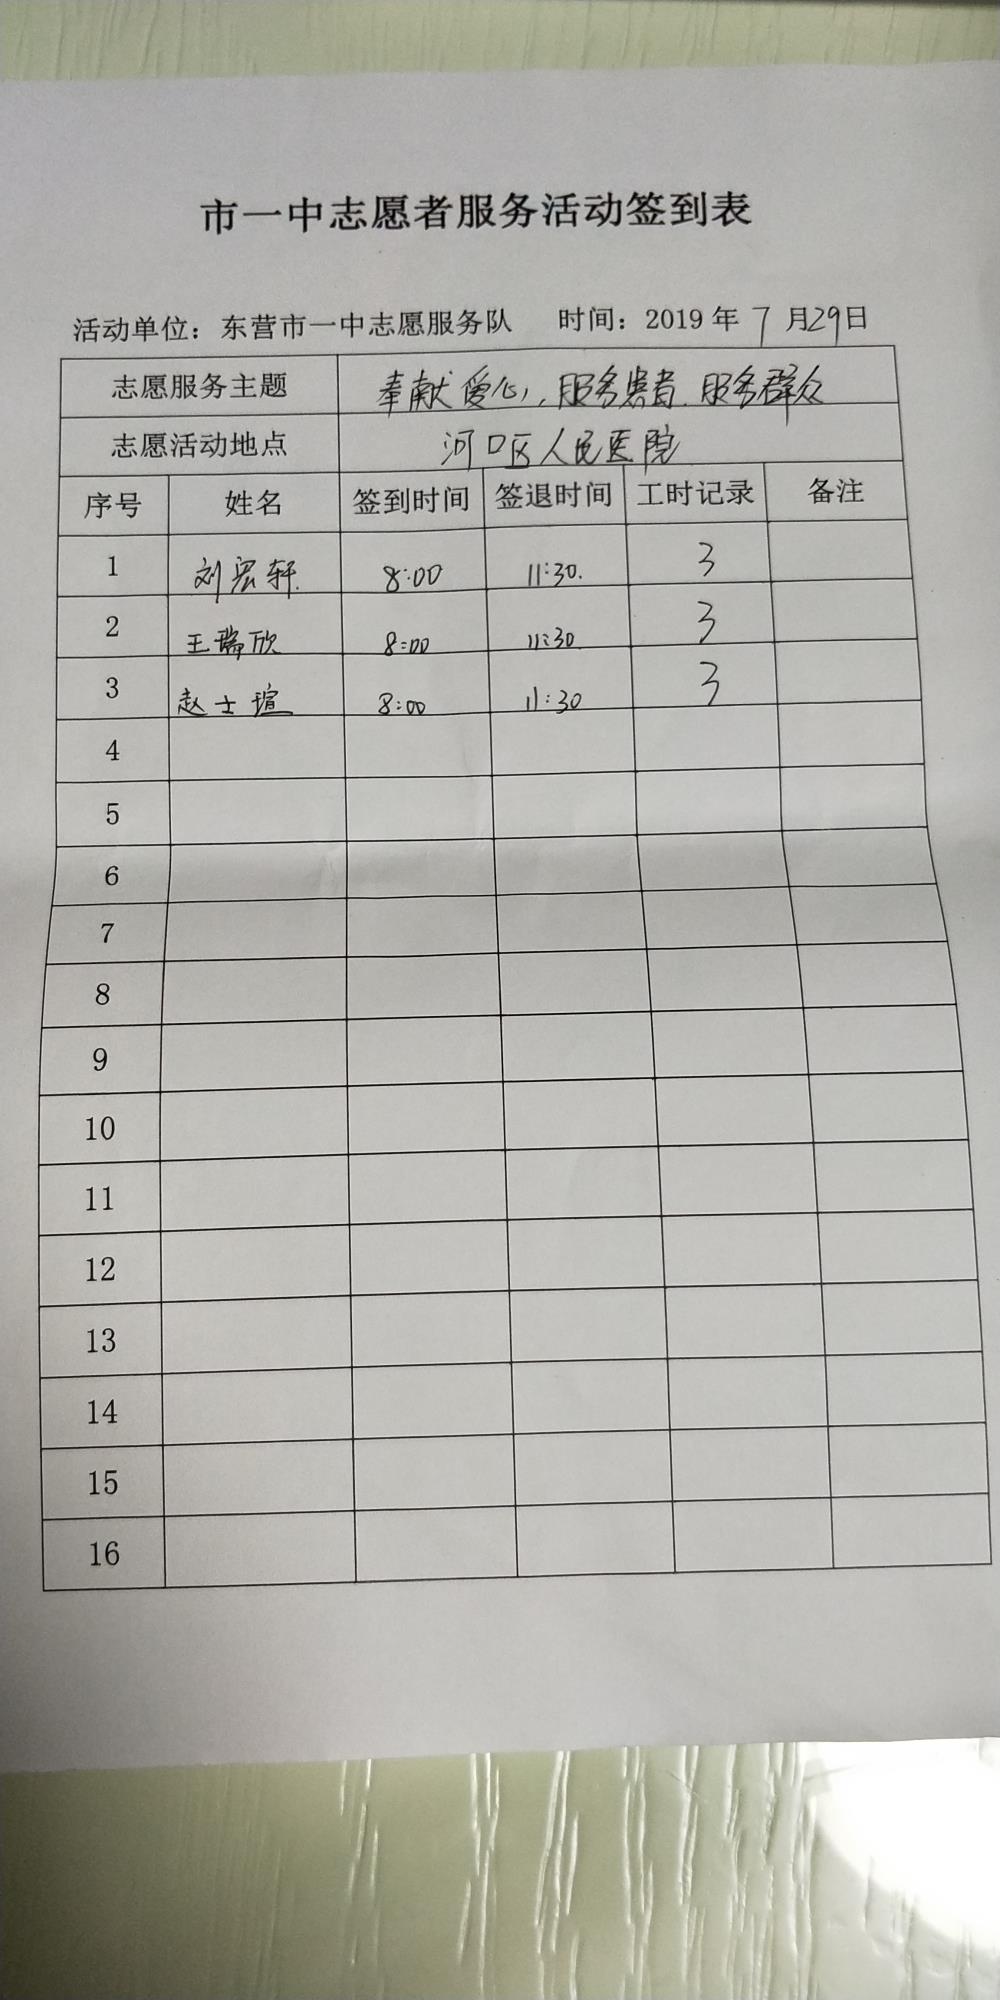 市一中志愿者服务活动签到表
活动单位：东营市一中志愿服务队 时间：2019年7月29日
志愿服务主题 奉献爱心，服务患者、服务群众
志愿活动地点 河口区人民医院
序号 姓名 签到时间 签退时间 工时记录 备注
1 刘宏轩 8:00 11:30. 3
2 王瑞欣 8:00 11:30 3
3 赵士瑄 8:00 11:30 3
4
5
6
7
8
9
10
11
12
13
14
15
16